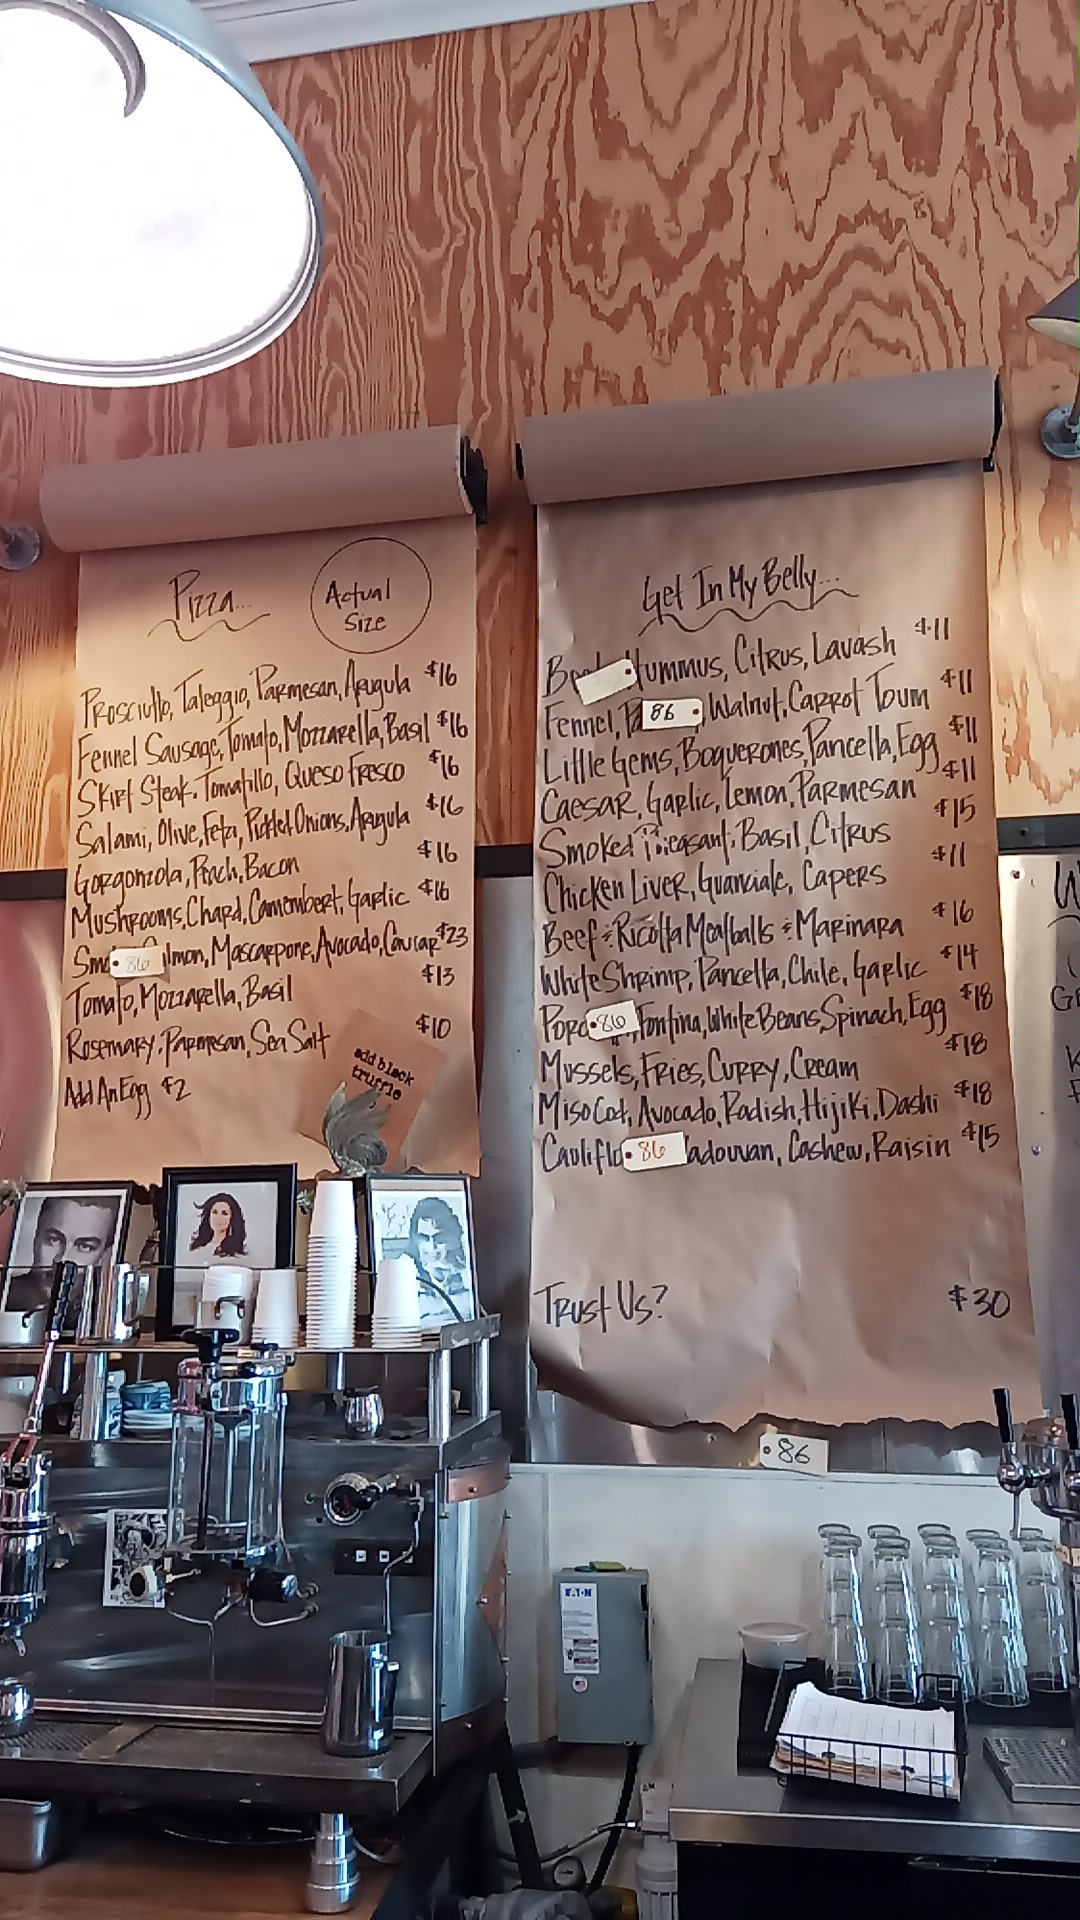 Pizza...
Actual
Size
Prosciutto, Taleggio, Parmesan, Arugula $16
Fennel Sausage, Tomato, Mozzarella, Basil $16
Skirt Steak, Tomatillo, Queso Fresco $16
Salami, Olive, Feta, Pickled Onions, Arugula $16
Gorgonzola, Peach, Bacon $16
Mushrooms, Chard, Camembert, Garlic $16
Smo 86 lmon, Mascarpone, Avocado, Caviar $23
Tomato, Mozzarella, Basil $13
Rosemary, Parmesan, Sea Salt $10
Add An Egg $2
add black
truffle
Get In My Belly...
Hummus, Citrus, Lavash $11
Fennel, 86, Walnut, Carrot Toum $11
Little Gems, Boquerones, Pancetta, Egg $11
Caesar, Garlic, Lemon, Parmesan $11
Smoked Pheasant, Basil, Citrus $15
Chicken Liver, Guanciale, Capers $11
Beef & Ricotta Meatballs & Marinara $16
White Shrimp, Pancetta, Chile, Garlic $14
86 Fontina, White Beans, Spinach, Egg $18
Mussels, Fries, Curry, Cream $18
Miso Cod, Avocado, Radish, Hijiki, Dashi $18
Cauliflo 86 adouvan, Cashew, Raisin $15
Trust Us? $30
86
EATON